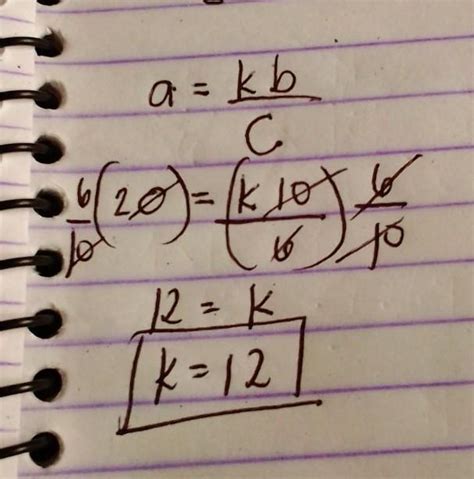 a = kb/C
6/10 (20) = (k 10/6) 6/10
12 = k
k = 12